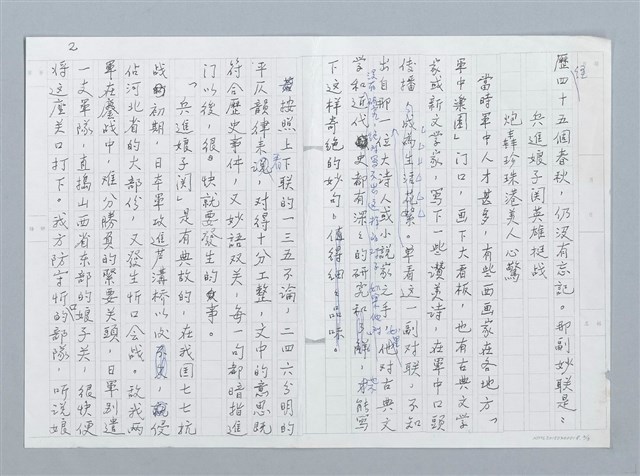 經
歷四十五個春秋，仍没有忘記。那副妙联是：
兵進娘子関英雄挺战
炮轟珍珠港美人心驚
當時軍中人才甚多，有些西画家在各地方「
軍中樂園」门口，画下大看板，也有古典文学
家或新文学家，写下一些讚美诗，在軍中口頭
传播，单看这一副对联，不知
出自那一位大诗人或小說家之手，他对古典文
学和近代史都有深深的研究和了解，才能写
下这样奇绝的妙句，值得细细品味。
2
按照上下联的一三五不論，二四六分明的
平仄韻律来説，对得十分工整，文中的意思既
符合歷史事件，又妙語双关，每一句都暗指進
门以後，很快就要發生的事。
「兵進娘子関」是有典故的，在我国七七抗
战初期，日本軍攻進芦溝桥以後，侵
佔河北省的大部份，又發生忻口会战。敌我两
軍在鏖战中，难分勝負的緊要关頭，日軍别遣
一支軍隊，直搗山西省东部的娘子关，很快便
将这座关口打下。我方防守忻口的部隊，听说娘